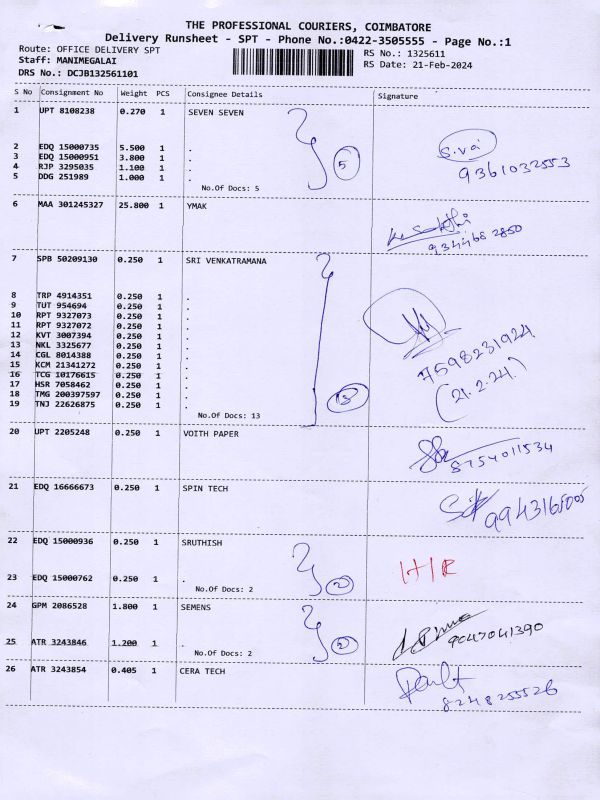 THE PROFESSIONAL COURIERS, COIMBATORE
Delivery Runsheet - SPT - Phone No.:0422-3505555 - Page No.:1
Route: OFFICE DELIVERY SPT RS No.: 1325611
Staff: MANIMEGALAI RS Date: 21-Feb-2024
DRS No.: DCJB132561101
S No Consignment No Weight PCS Consignee Details Signature
1 UPT 8108238 0.270 1 SEVEN SEVEN
2 EDQ 15000735 5.500 1 . S.vai
3 EDQ 15000951 3.800 1 . 5 9361032553
4 RJP 3295035 1.100 1 .
5 DDG 251989 1.000 1 .
No.Of Docs: 5
6 MAA 301245327 25.800 1 YMAK
9344682850
7 SPB 50209130 0.250 1 SRI VENKATRAMANA
8 TRP 4914351 0.250 1 .
9 TUT 954694 0.250 1 .
10 RPT 9327073 0.250 1 .
11 RPT 9327072 0.250 1 .
12 KVT 3007394 0.250 1 . 7598231924
13 NKL 3325677 0.250 1 .
14 CGL 8014388 0.250 1 .
15 KCM 21341272 0.250 1 . (21.2.24)
16 TCG 10176615 0.250 1 .
17 HSR 7058462 0.250 1 .
18 TMG 200397597 0.250 1 .
19 TNJ 22626875 0.250 1 .
No.Of Docs: 13
20 UPT 2205248 0.250 1 VOITH PAPER
8754011534
21 EDQ 16666673 0.250 1 SPIN TECH
9943165005
22 EDQ 15000936 0.250 1 SRUTHISH
23 EDQ 15000762 0.250 1 . 2
No.Of Docs: 2
24 GPM 2086528 1.800 1 SEMENS
9047041390
25 ATR 3243846 1.200 1 . 2
No.Of Docs: 2
26 ATR 3243854 0.405 1 CERA TECH
8248255526